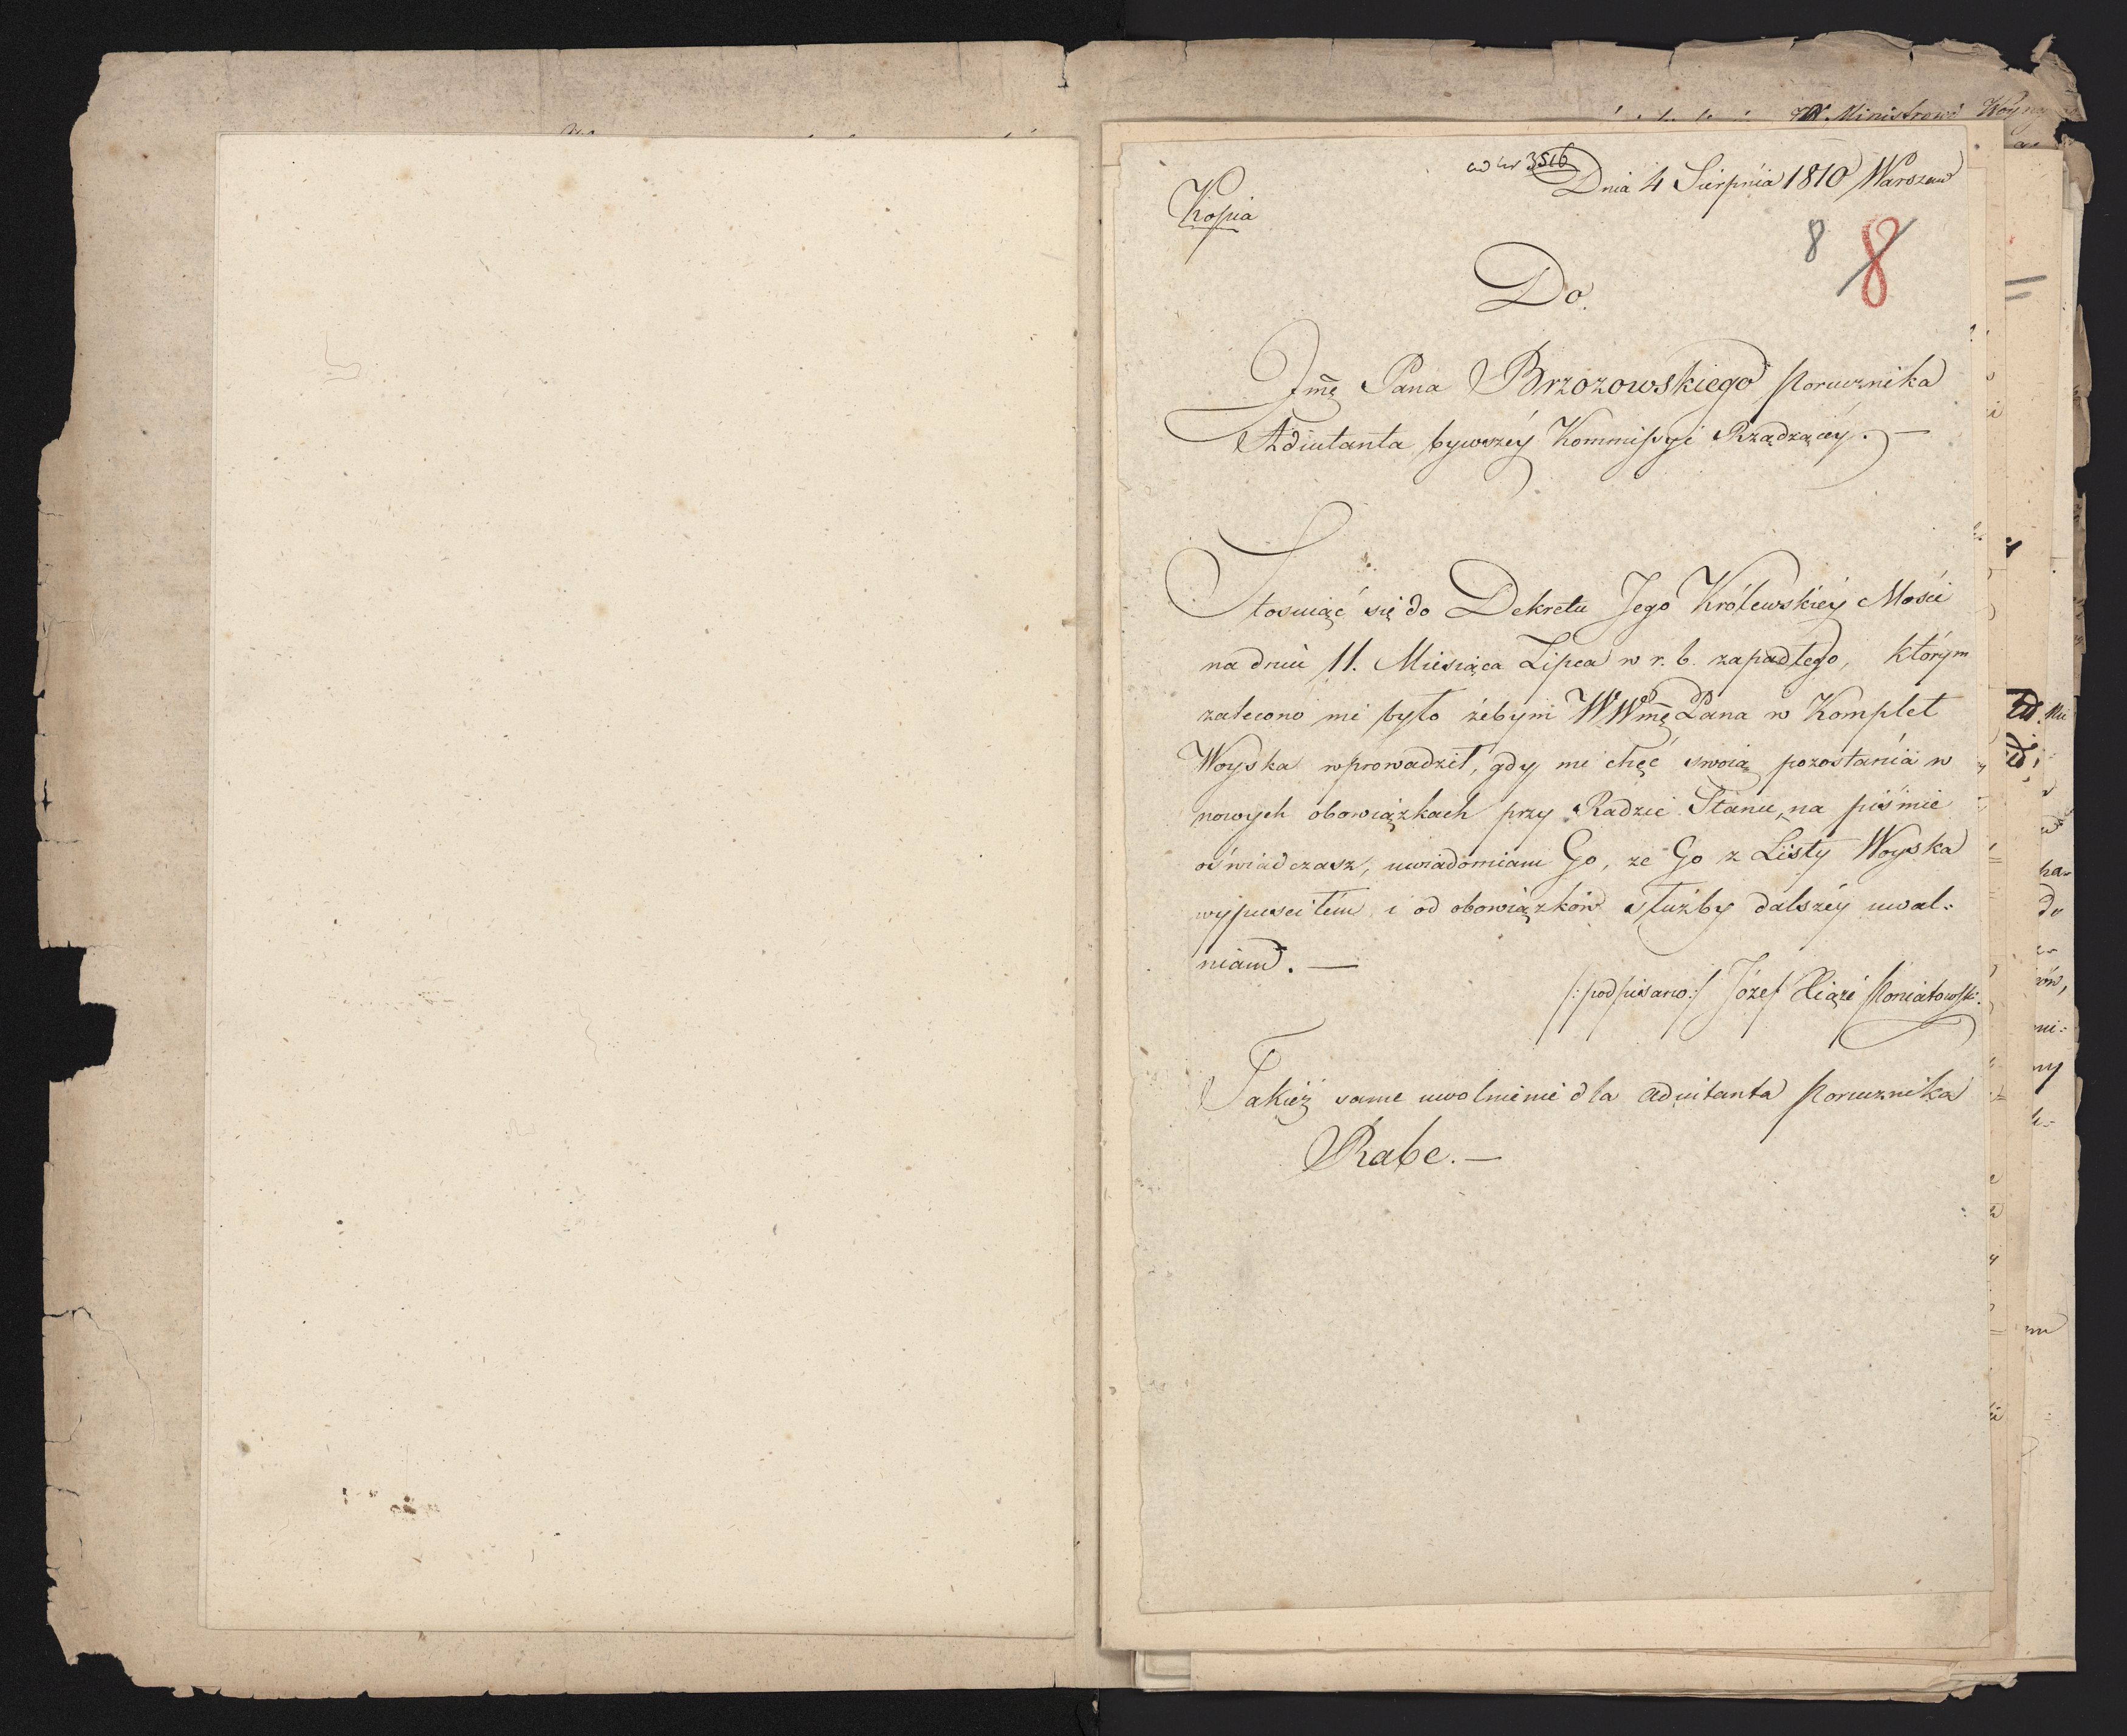 ad Nr 3516
Dnia 4 Sierpnia 1810 Warszaw
Kopia
8 8
Do.
Jmę Pana Brzozowskiego Porucznika
Adiutanta bywszéy Kommissyi Rządzącéy. —
Stosuiąc się do Dekretu Jego Królewskiéy Mości
na dniu 11. Miesiąca Lipca w r. b. zapadłego, którym
zalecono mi było żebym WWmę Pana w Komplet
Woyska wprowadził, gdy mi chęć swoią pozostania w
nowych obowiązkach przy Radzie Stanu, na piśmie
oświadczasz, uwiadomiam Go, że Go z Listy Woyska
wypuściłem i od obowiązków służby dalszéy uwal-
niam. —
/: podpisano :/ Józef Xiąże Poniatowski.
Takież same uwolnienie dla Adiutanta Porucznika
Rabe. —